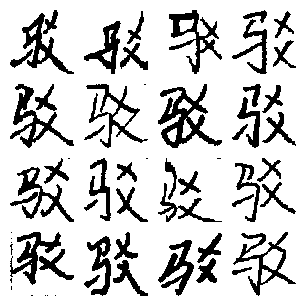 驳驳驳驳
驳驳驳驳
驳驳驳驳
驳驳驳驳